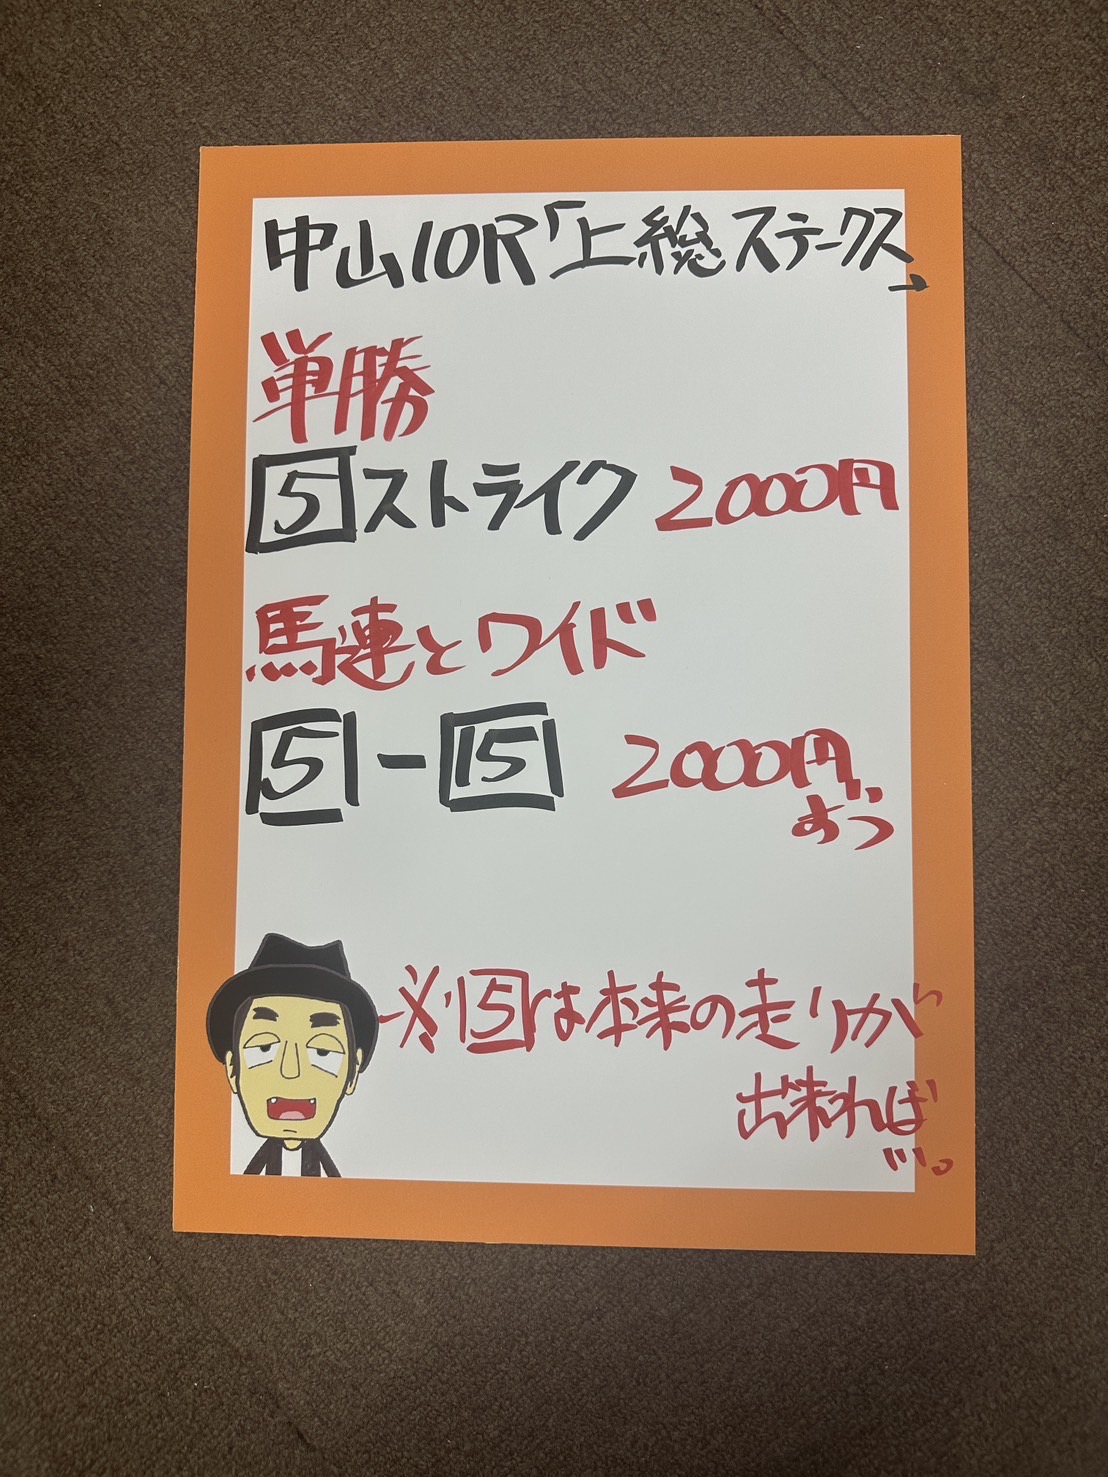 中山10R「上総ステークス」
単勝
5ストライク 2000円
馬連とワイド
5-15 2000円
ずつ
※5は本来の走りが
出来れば
…。